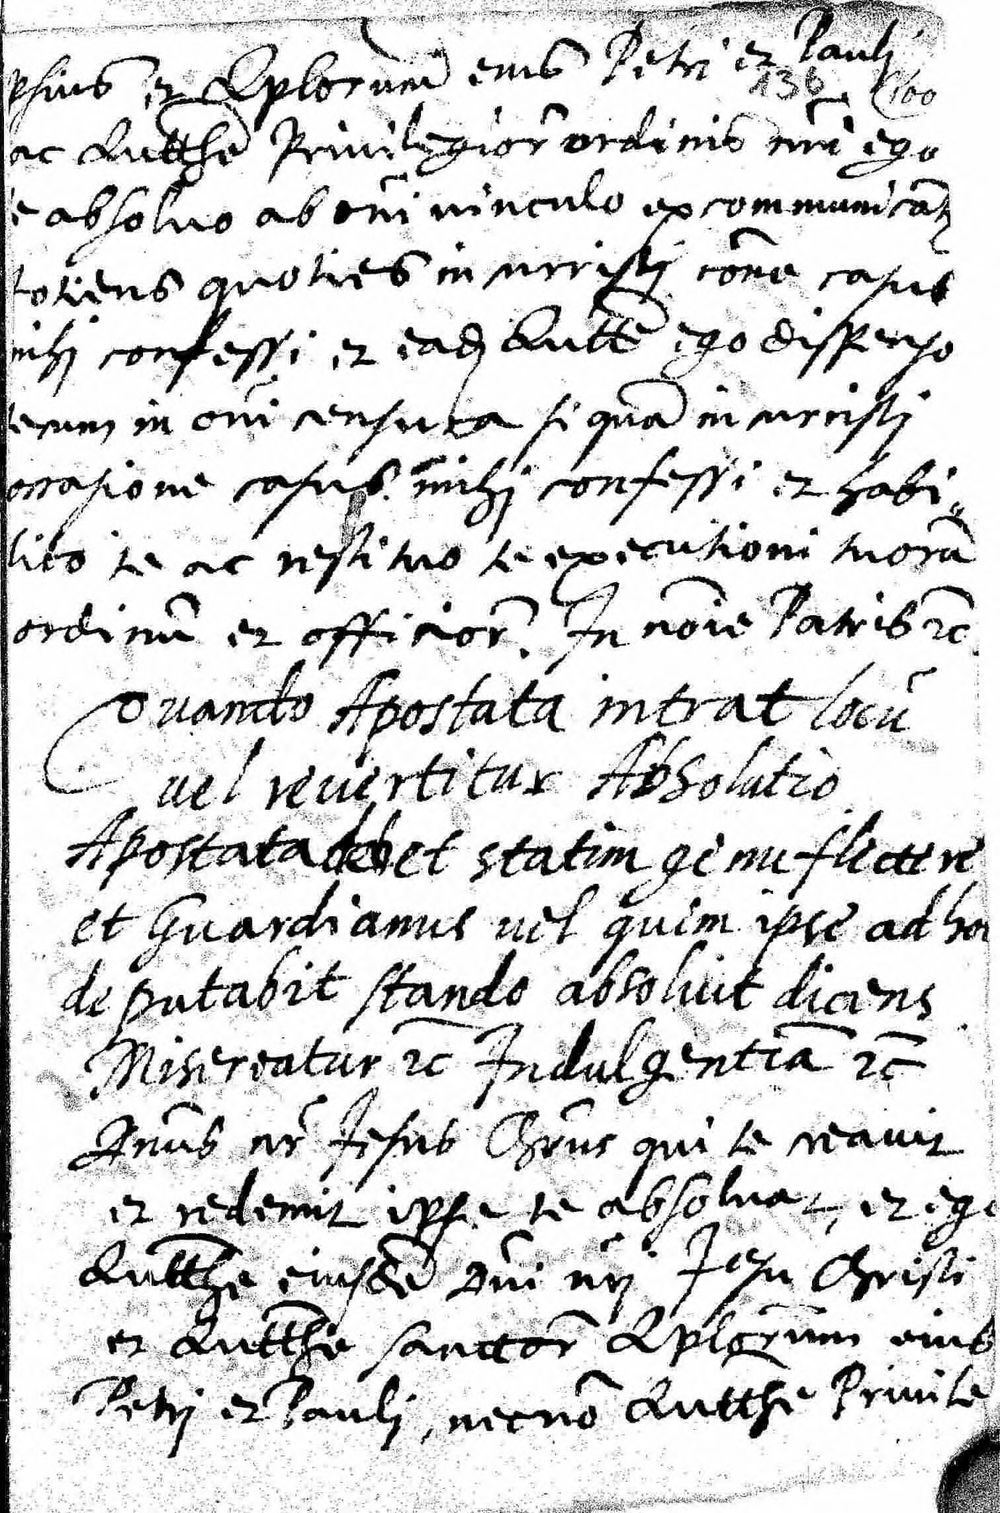 psius et Aplorum eius Petri et Pauli
138 160
ac Autthe Priuilegiorũ ordinis nri ego
te absoluo ab oñi uinculo excommunicatõis
totiens quoties incurristi rõne casus
mihi confessi et eadẽ Autte ego dispenso
tecum in oñi censura si quã incurristi
occasione casus mihi confessi et habi-
lito te ac restituo te executioni tuorũ
ordinũ et officiorũ. In noĩe Patris &c
Quando Apostata intrat locũ
uel reuertitur Absolutio
Apostata debet statim genuflectere
et Guardianus uel quem ipse ad hoc
deputabit stando absoluit dicens
Misereatur &c Indulgentiã &c
Dñus nr̃ Jesus Chr̃us qui te creauit
et redemit ipse te absoluat, et ego
Autthe eiusdẽ Dñi nr̃i Jesu Christi
et Autthe sanctorũ Aplorum eius
Petri et Pauli, necnõ Autthe Priuile